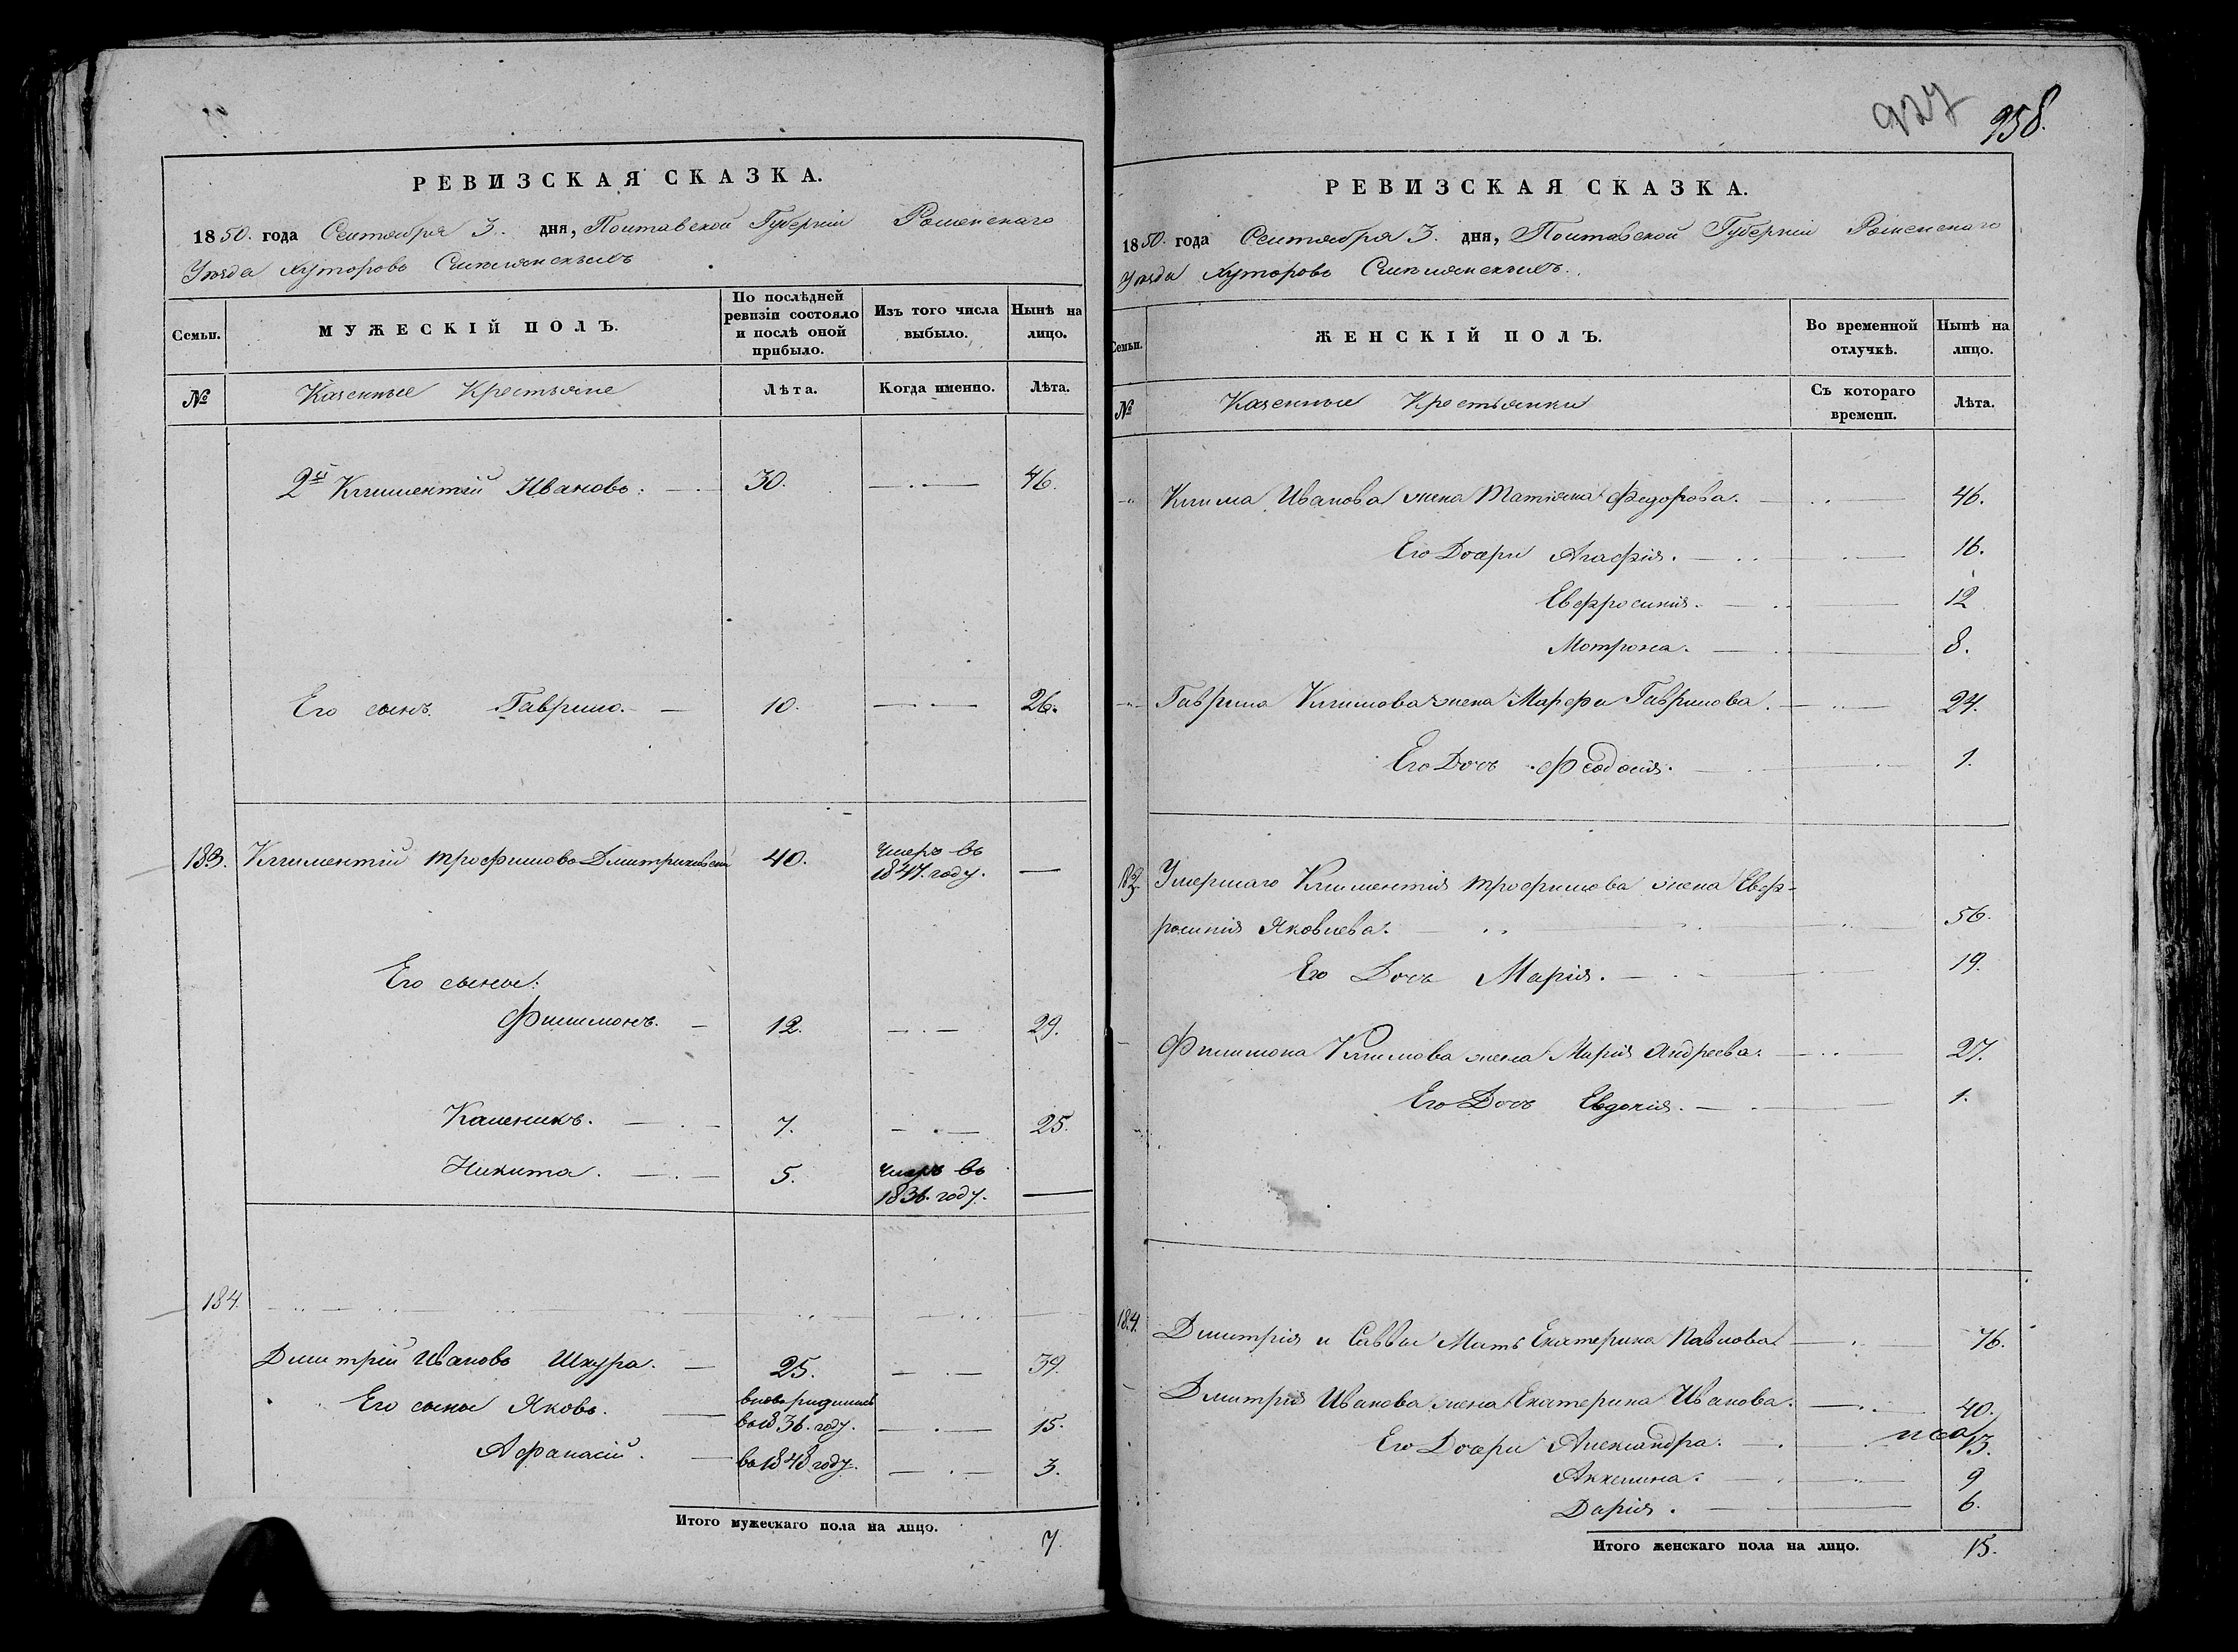 РЕВИЗСКАЯ СКАЗКА.
1850. года Сентября 3. дня, Полтавской Губерніи Роменскаго
Уѣзда Хуторовъ
Семьи.
МУЖЕСКІЙ ПОЛЪ.
По послѣдней ревизіи состояло и послѣ оной прибыло.
Изъ того числа выбыло.
Нынѣ на лицо.
№
Казенные Крестьяне
Лѣта.
Когда именно.
Лѣта.
2й Климентій Ивановъ. 30. 46.
Его сынъ Гаврило. 10. 26.
183. Климентій Трофимовъ 40. умеръ въ 1847. году.
Его сыны:
Филимонъ. 12. 29.
Каленикъ. 7. 25.
Никита. 5. умеръ въ 1836. году.
184.
Дмитрій Ивановъ Шкура. 25. 39.
Его сыны Яковъ. вновь родились въ 1836. году. 15.
Афанасій. въ 1848 году. 3.
Итого мужескаго пола на лицо. 7.
927 958.
РЕВИЗСКАЯ СКАЗКА.
1850. года Сентября 3. дня, Полтавской Губерніи Роменскаго
Уѣзда Хуторовъ
Семьи.
ЖЕНСКІЙ ПОЛЪ.
Во временной отлучкѣ.
Нынѣ на лицо.
№
Казенные Крестьянки
Съ котораго времени.
Лѣта.
Клима Иванова жена Татіяна Федорова. 46.
Его Дочери Агафія. 16.
Евфросинія. 12
Мотрона. 8.
Гаврила Климова жена Марфа Гаврилова. 24.
Его Дочь Феодосія. 1.
183. Умершаго Климентія Трофимова жена Евф-
росинія Яковлева. 56.
Его Дочь Марія. 19.
Филимона Климова жена Марія Андреева. 27.
Его Дочь Евдокія. 1.
184. Димитрія и Саввы Мать Екатерина Павлова 76.
Дмитрія Иванова жена Екатерина Иванова. 40.
Его Дочери Александра. 13.
Аккелина. 9
Дарія. 6.
Итого женскаго пола на лицо. 15.